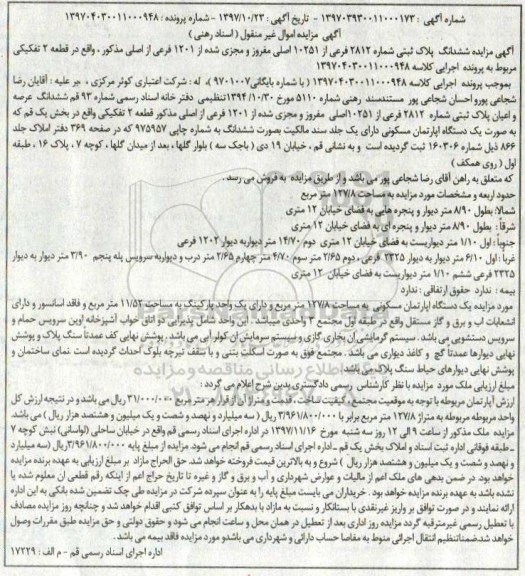 شماره آگهی : ۱۳۹۷۰۳۹۳۰۰۱۱۰۰۰۱۷۳ - تاریخ آگهی : ۱۳۹۷/۱۰/۲۳ - شماره پرونده : ۱۳۹۷۰۴۰۳۰۰۱۱۰۰۰۹۴۸
آگهی مزایده اموال غیر منقول (اسناد رهنی )
آگهی مزایده ششدانگ پلاک ثبتی شماره ۲۸۱۲ فرعی از ۱۰۲۵۱ اصلی مفروز و مجزی شده از ۱۲۰۱ فرعی از اصلی مذکور ، واقع در قطعه ۲ تفکیکی
مربوط به پرونده اجرایی کلاسه ۱۳۹۷۰۴۰۳۰۰۱۱۰۰۰۹۴۸
بموجب پرونده اجرایی کلاسه ۱۳۹۷۰۴۰۳۰۰۱۱۰۰۰۹۴۸ ( با شماره بایگانی ۹۷۰۱۰۰۷)، له : شرکت اعتباری کوثر مرکزی ، بر علیه : آقایان رضا
شجاعی پور و احسان شجاعی پور مستندسند رهنی شماره ۵۱۱۰ مورخ ۱۳۹۴/۱۰/۳۰ تنظیمی دفتر خانه اسناد رسمی شماره ۹۳ قم ششدانگ عرصه
و اعیان پلاک ثبتی شماره ۲۸۱۲ فرعی از ۱۰۲۵۱ اصلی مفروز و مجزی شده از ۱۲۰۱ فرعی از اصلی مذکور قطعه ۲ تفکیکی واقع در بخش یک قم که
به صورت یک دستگاه اپارتمان مسکونی دارای یک جلد سند مالکیت بصورت ششدانگ به شماره چاپی ۹۷۵۹۵۷ که در صفحه ۳۶۹ دفتر املاک جلد
۸۶۶ ذیل شماره ۱۶۰۳۰۶ ثبت گردیده است و به نشانی قم ، خیابان ۱۹ دی ( باجک سه ) بلوار گلها ، بعد از میدان گلها ، کوچه ۷ ، پلاک ۱۶ ، طبقه
اول ( روی همکف )
که متعلق به راهن آقای رضا شجاعی پور می باشد و از طریق مزایده به فروش می رسد .
حدود اربعه و مشخصات مورد مزایده به مساحت ۱۲۷/۸ متر مربع
شمالا: بطول ۸/۹۰ متر دیوار و پنجره هایی به فضای خیابان ۱۲ متری
شرقاً : بطول ۸/۹۰ متر دیوار و پنجره ای به فضای خیابان ۱۲ متری
جنوباً : اول ۱/۱۰ متر دیواریست به فضای خیابان ۱۲ متری دوم ۱۴/۷۰ متر دیواربه دیوار ۱۲۰۲ فرعی
غربا : اول ۶/۱۰ متر دیوار به دیوار ۲۳۲۵ فرعی ، دوم ۲/۶۵ متر سوم ۴/۷۰ متر چهارم ۲/۶۵ متر درب و دیواربه سرویس پله پنجم ۳/۹۰ متر دیوار به دیوار
۲۳۲۵ فرعی ششم ۱/۱۰ متر دیواریست به فضای خیابان ۱۲ متری
بیمه : ندارد حقوق ارتفاقی : ندارد
مورد مزایده یک دستگاه اپارتمان مسکونی به مساحت ۱۲۷/۸ متر مربع و دارای یک واحد پارکینگ به مساحت ۱۱/۵۲ متر مربع و فاقد اسانسور و دارای
انشعابات اب و برق و گاز مستقل واقع در طبقه اول مجتمع ۳ واحدی میباشد . این واحد شامل پذیرایی دو اتاق خواب آشپزخانه اوپن سرویس حمام و
سرویس دستشویی می باشد. سیستم گرمایش آن بخاری گازی و سیستم سرمایش آن کولر آبی می باشد . پوشش نهایی کف عمدتاً سنگ پلاک و پوشش
نهایی دیوارها عمدتاً گچ و کاغذ دیواری می باشد . مجتمع فوق به صورت اسکلت بتنی و با سقف تیرچه بلوک احداث گردیده است نمای ساختمان و
پوشش نهایی دیوارهای حیاط سنگ پلاک می باشد
مبلغ ارزیابی ملک مورد مزایده با نظر کارشناس رسمی دادگستری بدین شرح اعلام می گردد :
ارزش آپارتمان مربوطه با توجه به موقعیت مجتمع ، کیفیت ساخت ، مساحت و متراژ آن از قرار هر متر مربع ۳۱/۰۰۰/۰۰۰ ریال می باشد و در نتیجه ارزش کل
واحد مربوطه مربوطه به متراژ ۱۲۷/۸ متر مربع برابر با ۳/۹۶۱/۸۰۰/۰۰۰ ریال ( سه میلیارد و نهصد و شصت و یک میلیون و هشتصد هزار ریال ) می باشد
مزایده ملک مذکور از ساعت ۹ الی ۱۲ روز سه شنبه مورخ ۱۳۹۷/۱۱/۱۶ در اداره اجرای اسناد رسمی قم واقع در خیابان ساحلی (لواسانی) نبش کوچه ۷
-طبقه فوقانی اداره ثبت اسناد و املاک بخش یک قم -اداره اجرای اسناد رسمی قم انجام می شود. مزایده از مبلغ پایه ۳/۹۶۱/۸۰۰/۰۰۰ریال (سه میلیارد
و نهصد و شصت و یک میلیون و هشتصد هزار ریال ) شروع و به بالاترین قیمت فروخته خواهد شد. حق الحراج مازاد بر مبلغ ارزیابی به عهده برنده مزایده
خواهد بود. در ضمن بدهی های ملک اعم از مالیات و عوارض شهرداری و آب و برق و گاز و غیره تا تاریخ حراج اعم از اینکه رقم قطعی ان معلوم شده یا
نشده باشد به عهده برنده مزایده خواهد بود . خریداران می بایست مبلغ پایه را به عنوان سپرده شرکت در مزایده طی چک تضمین شده بانکی به این اداره
ارائه نمایند و در صورت توافق بر واریز غیرنقدی با بستانکار و نسبت به مازاد با بدهکار بر اساس توافق کتبی اقدام خواهد شد و چنانچه روز مزایده مصادف
با تعطیل رسمی غیرمترقبه گردد مزایده روز اداری بعد از تعطیل در همان محل و ساعت انجام می شود و حقوق دولتی و حق مزایده طبق مقررات وصول
خواهد شد.ضمناتنظیم انتقال اجرائی منوط به مفاصا حساب دارائی و شهرداری می باشدو مورد مزایده فاقد بیمه می باشد .
اداره اجرای اسناد رسمی قم - م الف : ۱۷۲۲۹